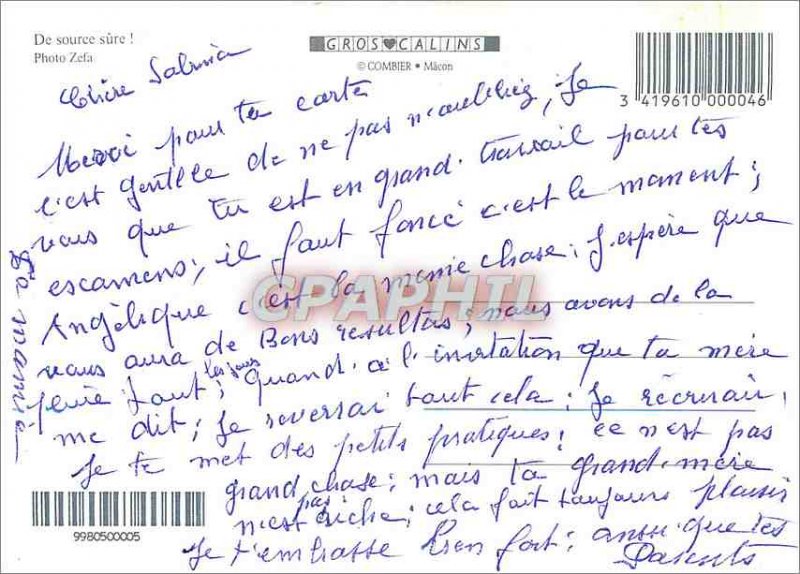 De source sûre !
Photo Zefa
GROS CALINS
© COMBIER • Mâcon
3 419610 000046
Chère Sabrina
Merci pour ta carte
c'est gentlle de ne pas m'oubliez, Je
vais que tu est en grand. travail pour tes
escamens; il faut forcé c'est le moment;
Angèlique c'est la même chose; J'espère que
vous aura de Bons resultas; nous avons de la
pluie tout les jours; Quand. a l'invitation que ta mère
me dit; Je reverrai tout cela; Je récrirai;
Je te met des petits pratiques; ce n'est pas
grand chose; mais ta grand-mère
n'est pas riche; cela fait toujours plaisir
Je t'embrasse bien fort; ansi que tes
Parents
La mamie
CPAPHIL
9980500005